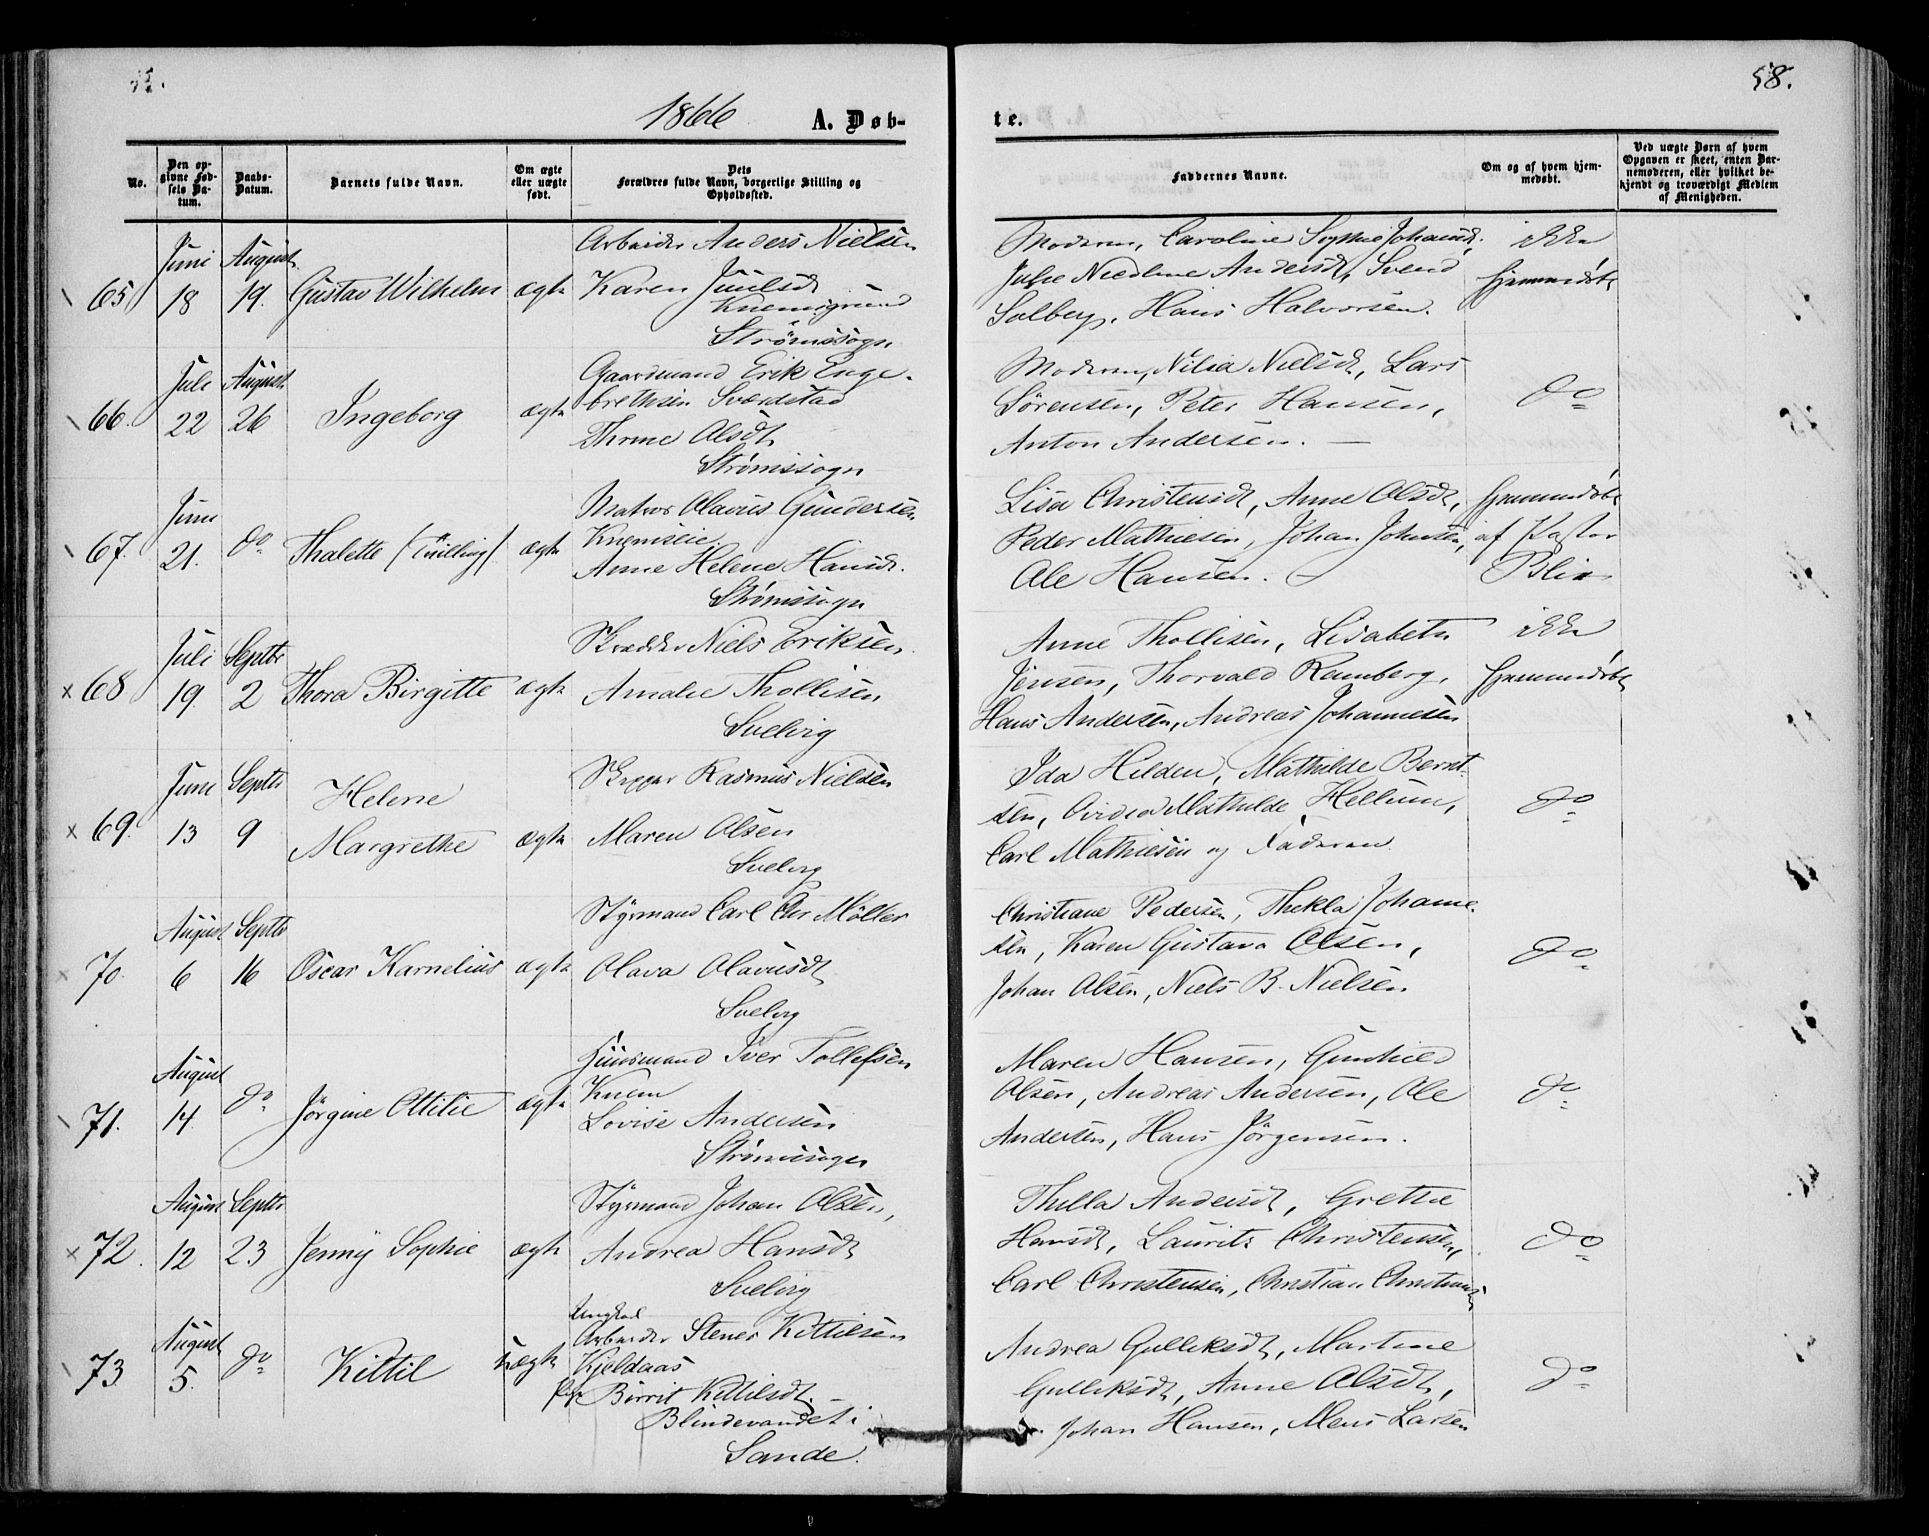 58.
1866
A. Døb-
te.
No.
Den op-
givne Fød-
sels Da-
tum.
Daabs-
Datum.
Barnets fulde Navn.
Om ægte
eller uægte
født.
Dets
Forældres fulde Navn, borgerlige Stilling og
Opholdssted.
Faddernes Navne.
Om og af hvem hjem-
medøbt.
Ved uægte Børn af hvem
Opgaven er skeet, enten Bar-
nemoderen, eller hvilket be-
kjendt og troværdigt Medlem
af Menigheden.
65
Juni
18
August
19.
Gustav Wilhelm
ægte
Arbeider Anders Nielsen
Karen Juulsdt
Knemsgrund
Strømssogn
Moderen, Caroline Sophie Johansdt,
Andersdt, Svend
Solberg, Hans Halvorsen.
ikke
hjemmedøbt
66.
Juli
22
August
26
Ingeborg
ægte
Gaardmand Erik Enge-
brethsen Sværdstad
Olsdt
Strømssogn
Moderen, Nilia Nielsdt, Lars
Sørensen, Peter Hansen,
Anton Andersen. —
do
67.
Juni
21.
do
Thalette (Tvilling)
ægte
Matros Olavus Gundersen
Knemseie
Anne Helene Hansdt.
Strømssogn
Lisa Christensdt, Anne Olsdt,
Peder Mathiesen, Johan Johnsen,
Ole Hansen. —
hjemmedøbt
af Pastor
Blix
68
Juli
19.
Septbr
2
Thora Birgitte
ægte
Skrædder Niels Eriksen.
Amalie Thollisen
Svelvig
Anne Thollisen, Lisabeth
Jensen, Thorvald Ramberg,
Hans Andersen, Andreas Johannesen
ikke
hjemmedøbt
69.
Juni
13
Septbr
9
Helene
Margrethe
ægte
Skipper Rasmus Nielsen
Maren Olsen
Svelvig
Ida Helden, Mathilde Bernt-
sen, Mathilde Hellum,
Carl Mathiesen og Faderen
do
70.
August
6
Septbr
16
Oscar Karnelius
ægte
Styrmand Carl Chr Møller
Olava Olavusdt
Svelvig
Christiane Pedersen, Thekla Johanne-
sen, Karen Gustava Olsen,
Johan Olsen, Niels B. Nielsen
do
71.
August
14.
do
Jørgine Ottilie
ægte
Huusmand Iver Tollefsen
Knem
Lovise Andersen
Strømssogn
Maren Hansen, Gunhild
Olsen, Andreas Andersen, Ole
Andersen, Hans Jørgensen.
do
72.
August
12
Septbr
23
Jenny Sophie
ægte
Styrmand Johan Olsen,
Andrea Hansdt
Svelvig
Thilla Andersdt, Grethe
Hansdt, Laurits Christensen,
Carl Christensen, Christian Christensen
do
73.
August
5.
do
Kittil
uægte
Ungkarl
Arbeider Stener Kittilsen
Kjeldaas
Pige Birrit Kittilsdt. —
Blindevandet i
Sande.
Andrea Gulliksdt, Martine
Gulliksdt, Anne Olsdt,
Johan Hansen, Mens Larsen
do